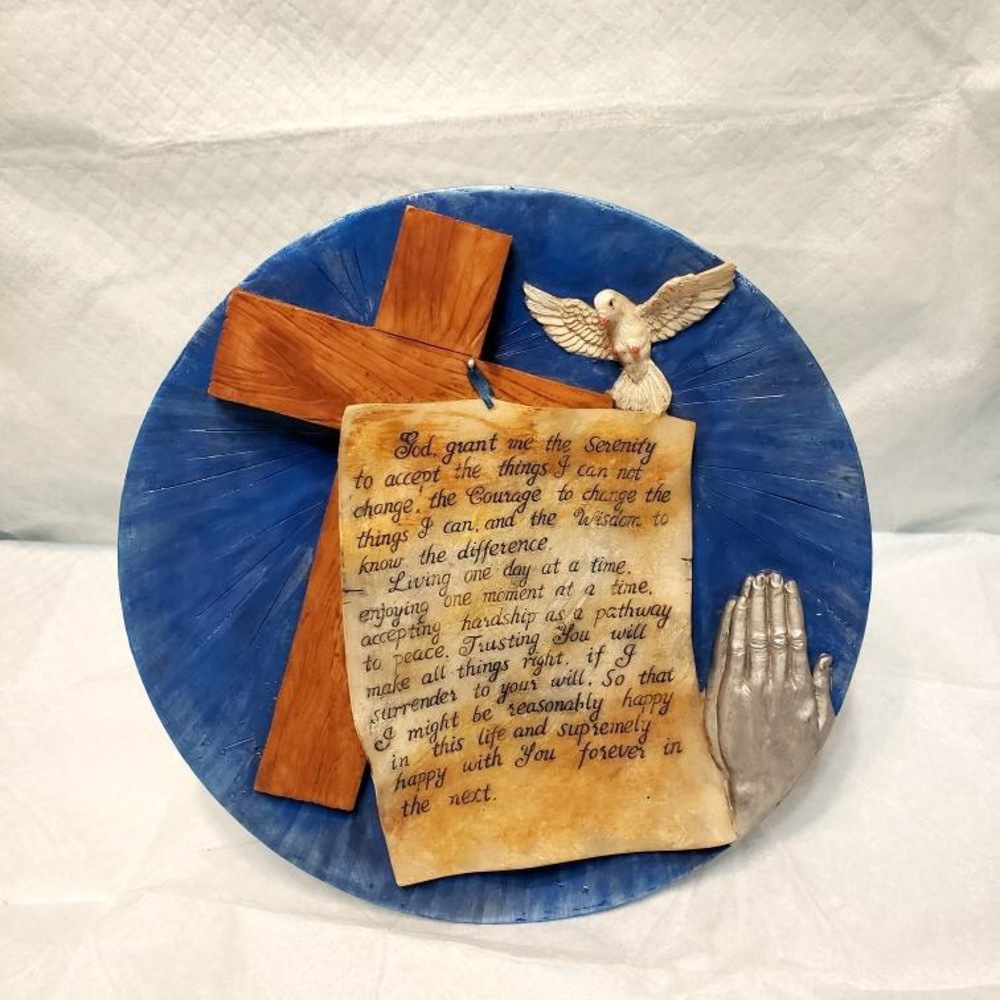 God, grant me the Serenity
to accept the things I can not
change, the Courage to change the
things I can, and the Wisdom to
know the difference.
Living one day at a time,
enjoying one moment at a time,
accepting hardship as a pathway
to peace. Trusting You will
make all things right, if I
surrender to your will. So that
I might be reasonably happy
in this life and supremely
happy with You forever in
the next.